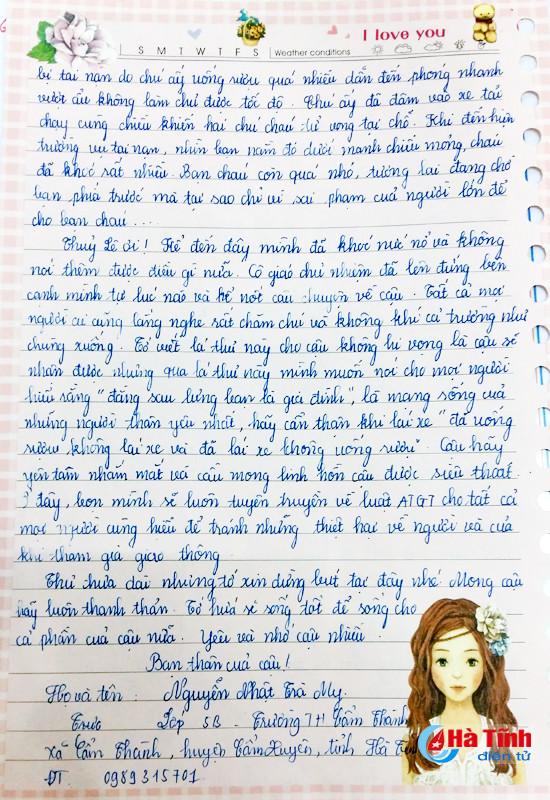 I love you
S M T W T F S Weather conditions
bị tai nạn do chú ấy uống rượu quá nhiều dẫn đến phóng nhanh
vượt ẩu không làm chủ được tốc độ. Chú ấy đã đâm vào xe tải
chạy cùng chiều khiến hai chú cháu tử vong tại chỗ. Khi đến hiện
trường vụ tai nạn, nhìn bạn nằm đó dưới manh chiếu mỏng, cháu
đã khóc rất nhiều. Bạn cháu còn quá nhỏ, tương lai đang chờ
bạn phía trước mà tại sao chỉ vì sai phạm của người lớn để
cho bạn cháu ...
Thuỷ Lê ơi! Kể đến đây mình đã khóc nức nở và không
nói thêm được điều gì nữa. Cô giáo chủ nhiệm đã lên đứng bên
cạnh mình tự lúc nào và kể nốt câu chuyện về cậu. Tất cả mọi
người ai cũng lắng nghe rất chăm chú và không khí cả trường như
chùng xuống. Tớ viết lá thư này cho cậu không hi vọng là cậu sẽ
nhận được nhưng qua lá thư này mình muốn nói cho mọi người
hiểu rằng "đằng sau lưng bạn là gia đình", là mạng sống của
những người thân yêu nhất, hãy cẩn thận khi lái xe "đã uống
rượu không lái xe và đã lái xe không uống rượu". Cậu hãy
yên tâm nhắm mắt và cầu mong linh hồn cậu được siêu thoát
Ở đây, bọn mình sẽ luôn tuyên truyền về luật ATGT cho tất cả
mọi người cùng hiểu để tránh những thiệt hại về người và của
khi tham gia giao thông.
Thư chưa dài nhưng tớ xin dừng bút tại đây nhé. Mong cậu
hãy luôn thanh thản. Tớ hứa sẽ sống tốt để sống cho
cả phần của cậu nữa. Yêu và nhớ cậu nhiều.
Bạn thân của cậu!
Họ và tên: Nguyễn Nhật Trà My.
Lớp 5B - Trường TH Cẩm Thành
xã Cẩm Thành, huyện Cẩm Xuyên, tỉnh Hà
ĐT. 0989315701.
Hà Tĩnh
điện tử